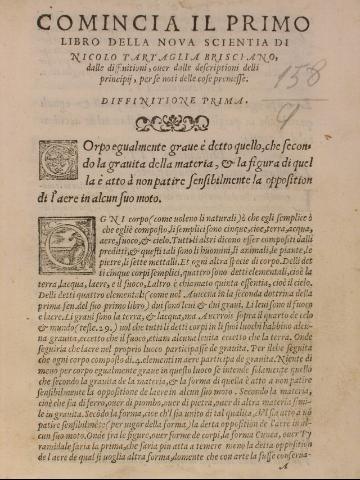 COMINCIA IL PRIMO
LIBRO DELLA NOVA SCIENTIA DI
NICOLO TARTAGLIA BRISCIANO,
dalle diffinitioni, ouer dalle descriptioni delli
principij, per se noti delle cose premesse.
158
9
DIFFINITIONE PRIMA.
COrpo egualmente graue è detto quello, che secon-
do la grauita della materia, & la figura di quel
la è atto à non patire sensibilmente la opposition
di l'aere in alcun suo moto.
OGNI corpo (come uoleno li naturali) ò che egli semplice ò
che egli è composto, li semplici sono cinque, cioe, terra, acqua,
aere, fuoco, & cielo. Tutti li altri dicono esser compositi dalli
prediti, & questi tali sono li huomini, li animali, le piante, le
pietre, li sette metalli. Et ogni altra specie di corpo. Delli det
ti cinque corpi semplici, quattro sono detti elementali, cioè la
terra, lacqua, laere, e il fuoco, Laltro è chiamato quinta essentia, cioè il cielo.
Delli detti quattro elementali (come uol Auicena in la seconda dottrina della
prima fen. del suo primo libro) dui sono leui & dui graui. Li leui sono il fuoco
e laere, Li graui sono la terra, & lacqua, ma Auerrois sopra il quarto de cielo
& mundo (teste. 29.) uol che tutti li detti corpi in li suoi luochi habbino alcu-
na grauita, eccetto che il fuoco, etiam alcuna leuita eccetto che la terra. Onde
seguiria che laere nel proprio luoco participasse de grauita. Per ilche seguita
che ogni corpo composto di. 4. elementi in aere participa de grauita. Niente di
meno per corpo egualmente graue in questo luoco se intende solamente quello
che secondo la grauita de la materia, & la forma di quella è atto a non patire
sensibilmente la oppositione de laere in alcun suo moto. Secondo la materia,
cioè che sia di ferro, ouer di piombo, ouer di pietra, ouer di altra materia simi-
le in grauita. Secõdo la forma, cioe ch'l sia unito di tal qualita, ch'l sia atto a nõ
patire sensibilmete (per uigor della forma) la detta oppositiõe de l'aere in al-
cun suo moto. Onde fra le figure, ouer forme de corpi, la forma Cunea, ouer Py
ramidale saria la prima, che saria piu atta a temere meno la detta opposition
de l'aere de qual si uoglia altra forma, domente che con arte la fusse conserua-
A